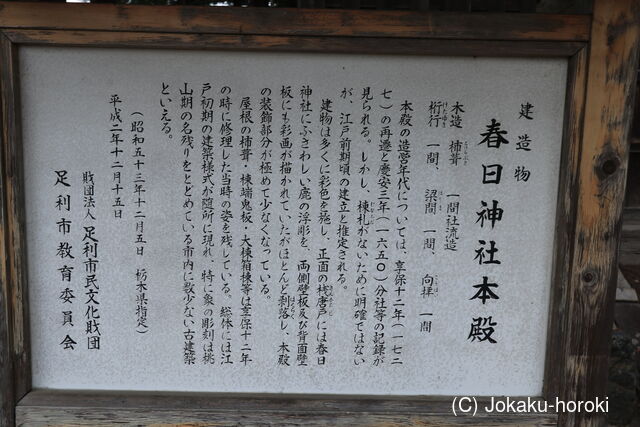 建造物
春日神社本殿
木造 柿葺 一間社流造
桁行 一間、 梁間 一間、 向拝 一間
本殿の造営年代については、享保十二年(一七二
七)の再遷と慶安三年(一六五〇)分社等の記録が
見られる。しかし、棟札がないために明確ではない
が、江戸前期頃の建立と推定される。
建物は多くに彩色を施し、正面の桟唐戸には春日
神社にふさわしい鹿の浮彫を、両側壁板及び背面壁
板にも彩画が描かれていたがほとんど剥落し、本殿
の装飾部分が極めて少なくなっている。
屋根の柿葺・棟端鬼板・大棟箱棟等は享保十二年
の時に修理した当時の姿を残している。総体には江
戸初期の建築様式が随所に現れ、特に象の彫刻は桃
山期の名残りをとどめている市内に数少ない古建築
といえる。
(昭和五十三年十二月五日 栃木県指定)
平成二年十二月十五日
財団法人 足利市民文化財団
足利市教育委員会
(C) Jokaku-horoki